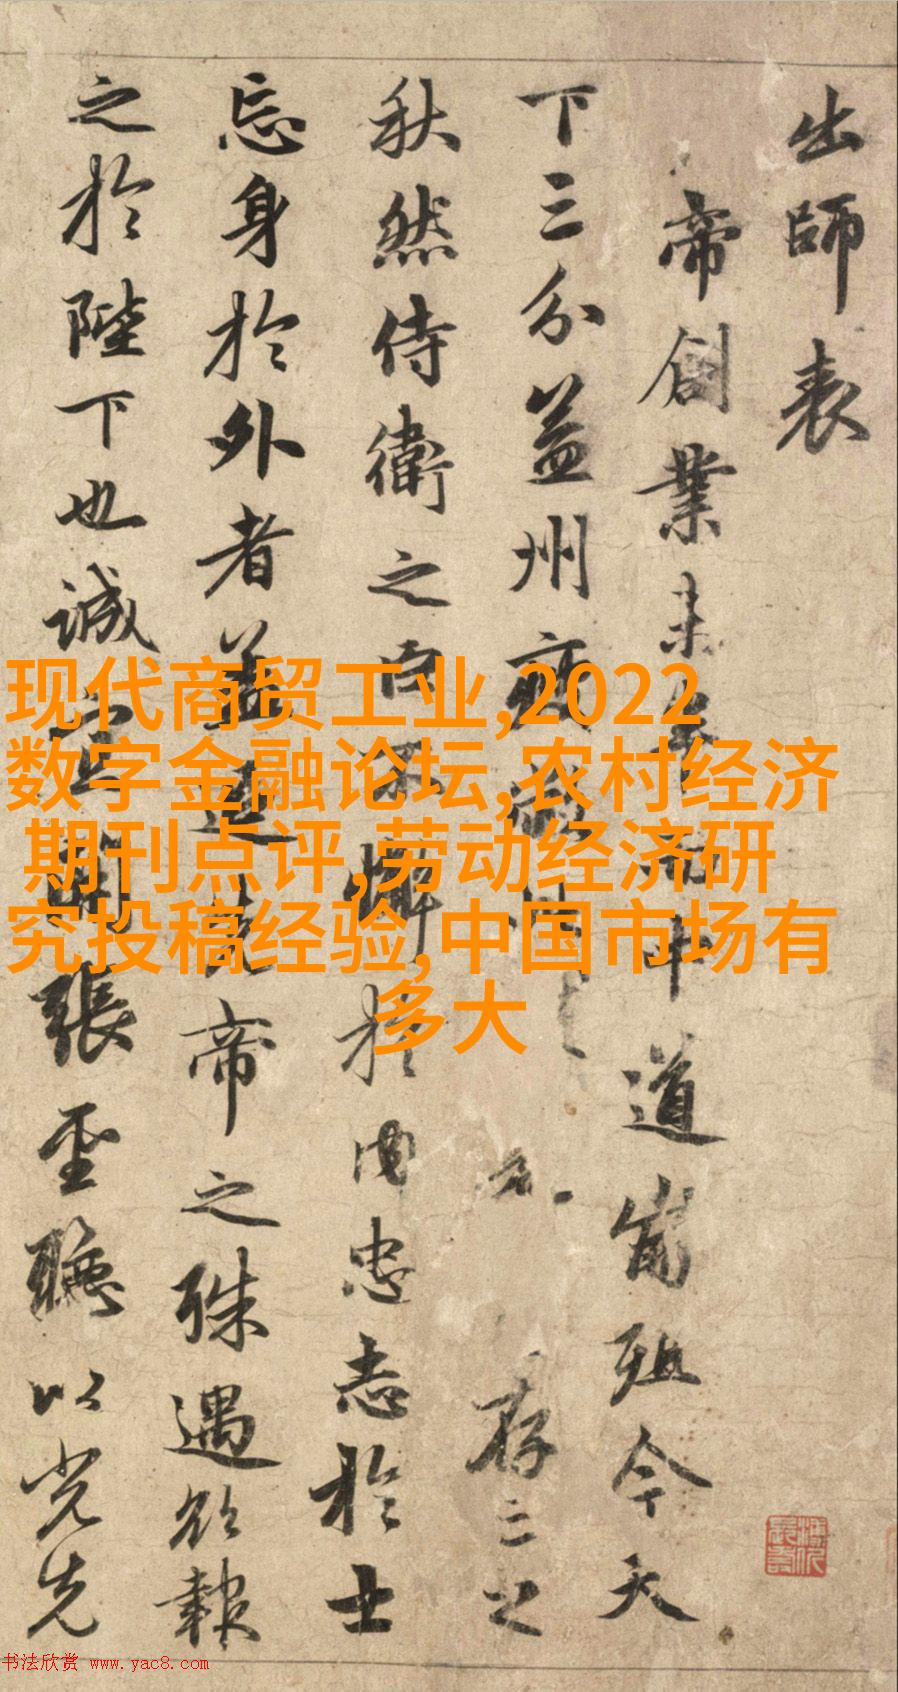 出師表
帝創業未半而中道崩殂今天
下三分益州疲弊存亡之
秋然侍衛之臣不懈於内忠志於士
忘身於外者蓋追先帝之殊遇欲報
之於陛下也誠宜開張聖聽以光先
现代商贸工业,2022
数字金融论坛,农村经济
期刊点评,劳动经济研
究投稿经验,中国市场有
多大
书法欣赏 www.yac8.com